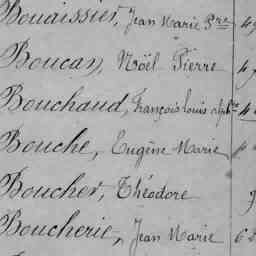 Bouaissier, Jean Marie Pre
Boucan, Noël Pierre
Bouchaud, François Louis
Bouche, Eugène Marie
Boucher, Théodore
Boucherie, Jean Marie